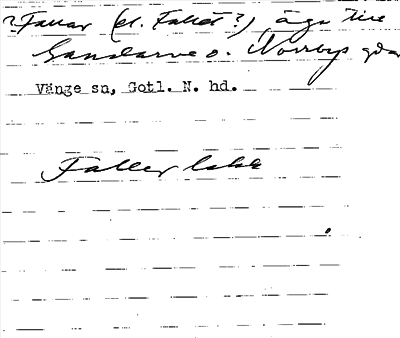 ?Fallar (el. Fallet?) äga till
Gandarve o. Norrbys gdar
Vänge sn, Gotl. N. hd.
Faller